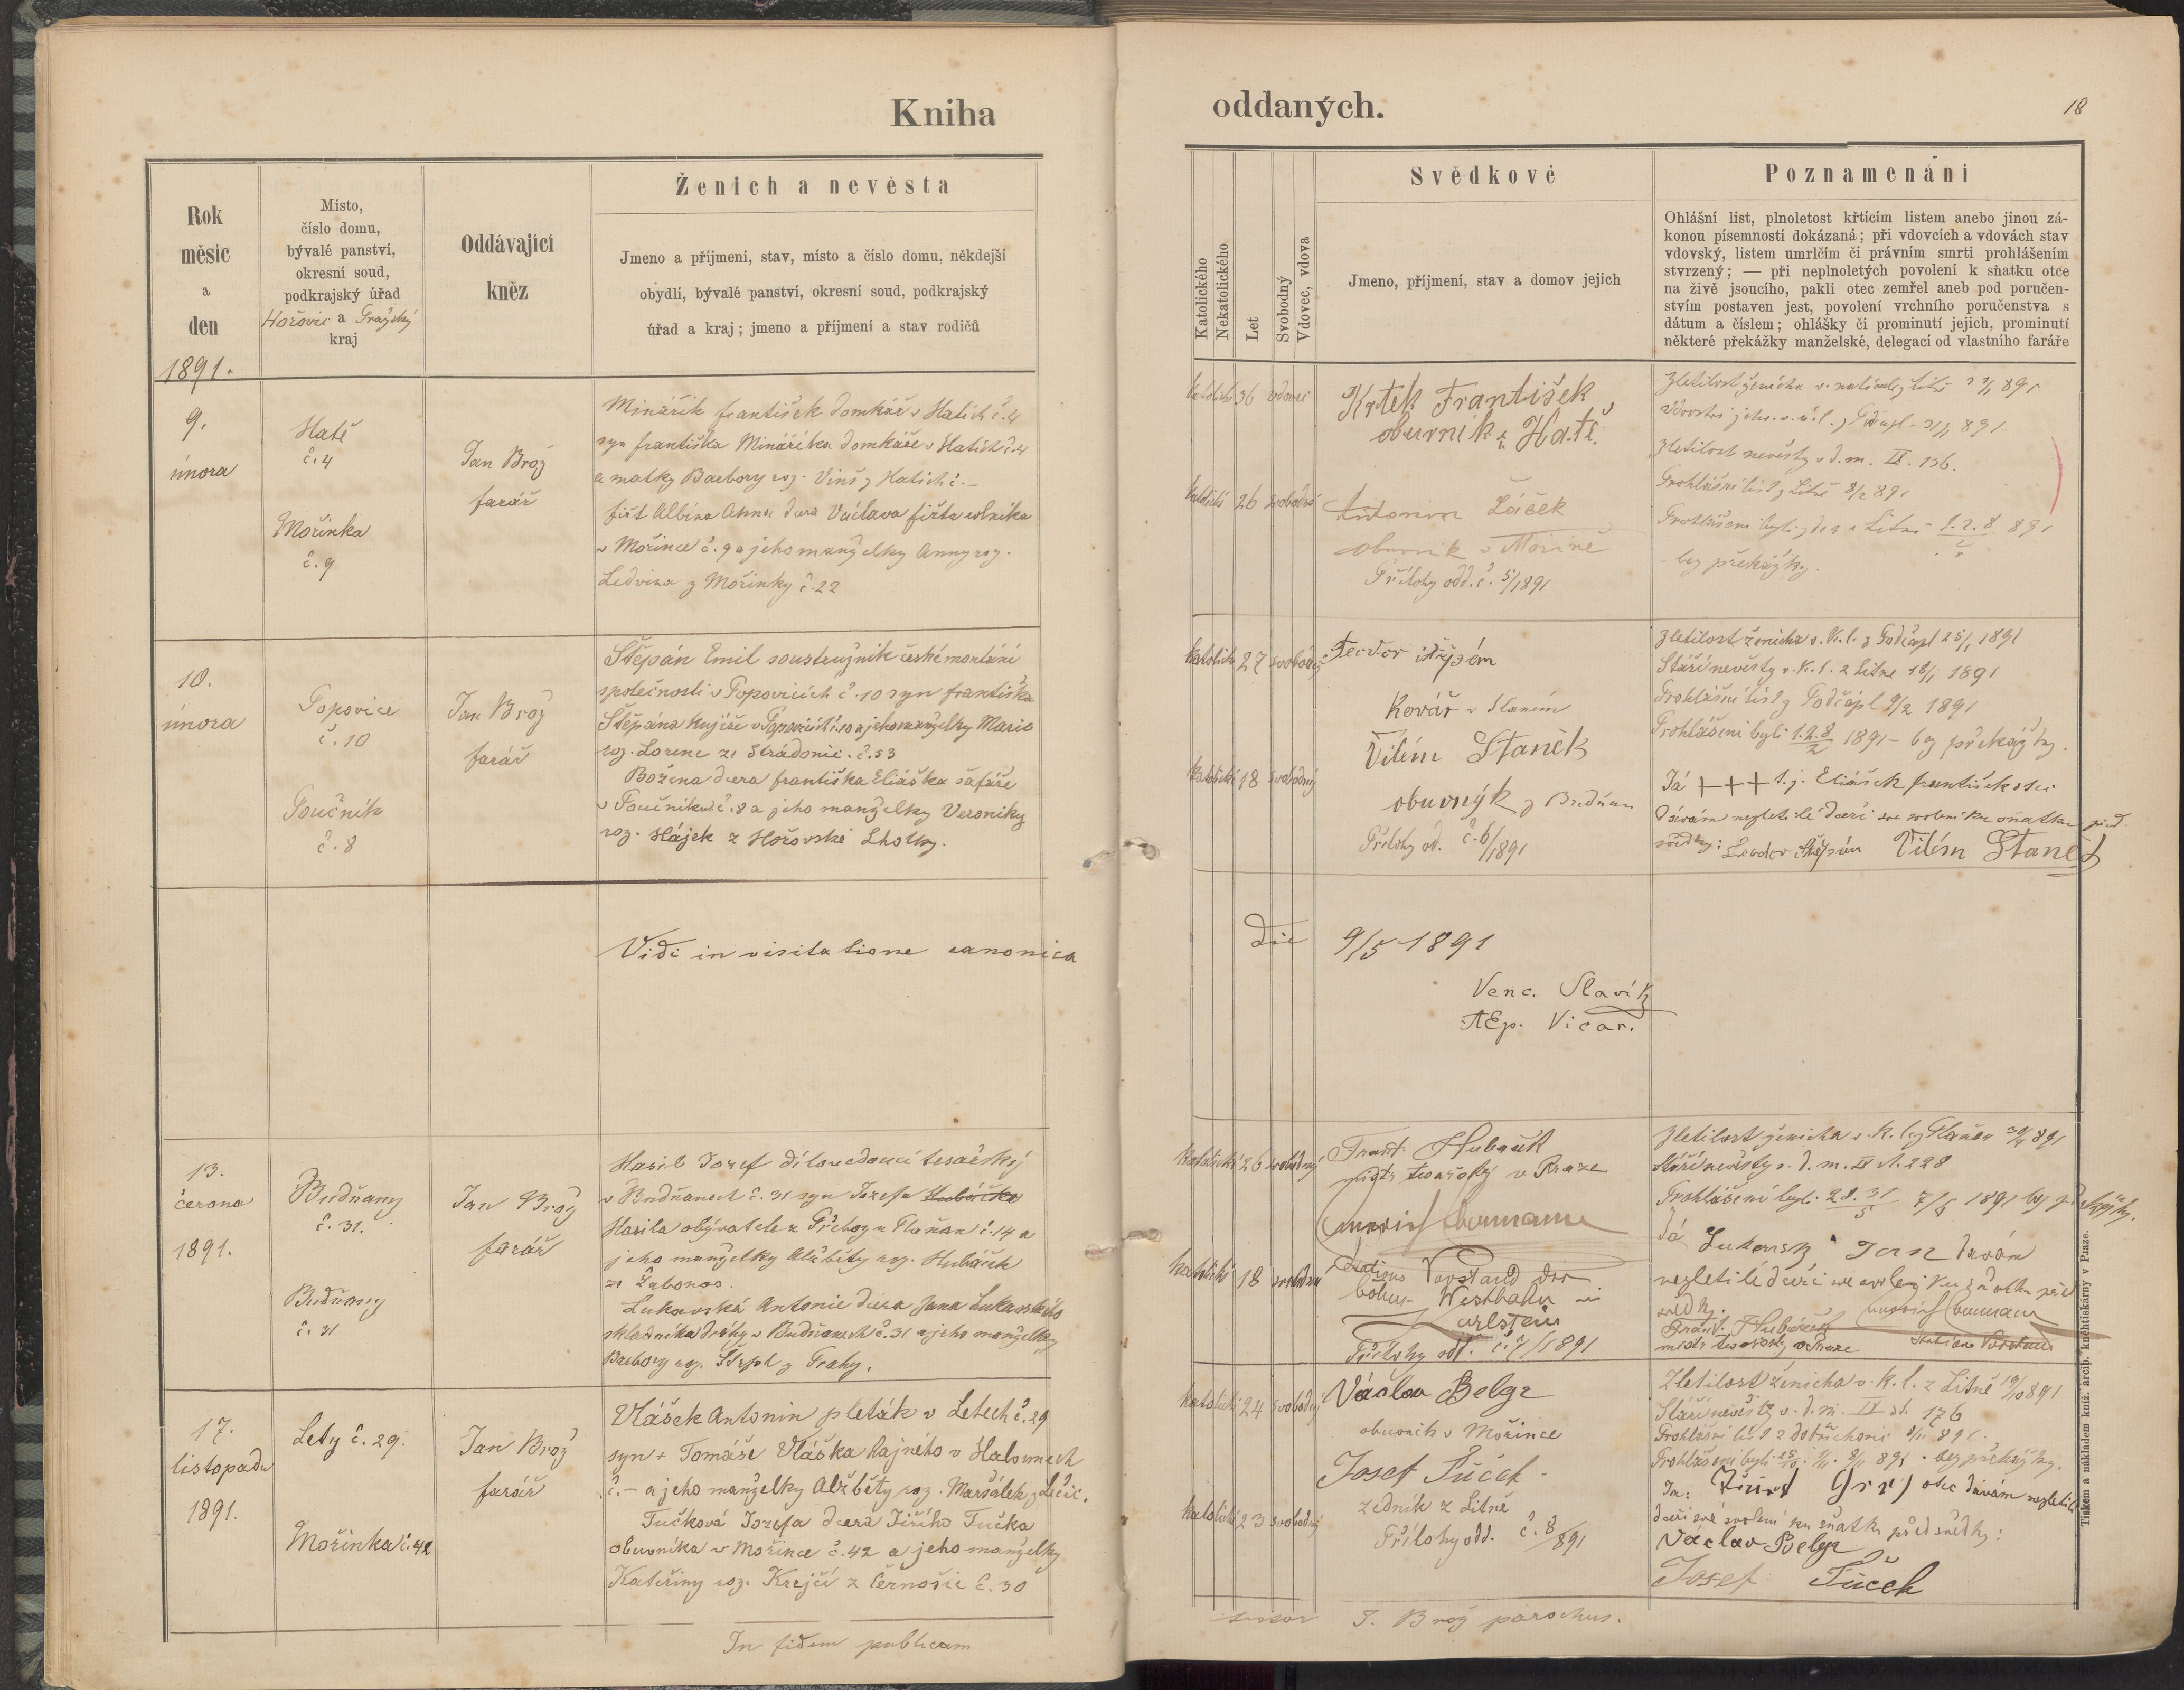 Kniha
oddaných.
18
Rok
měsíc
a
den
1891.
Místo,
číslo domu,
bývalé panství,
okresní soud,
podkrajský úřad
Hořovic a Pražský
kraj
Oddávající
kněz
Ženich a nevěsta
Jmeno a příjmení, stav, místo a číslo domu, někdejší
obydlí, bývalé panství, okresní soud, podkrajský
úřad a kraj; jmeno a příjmení a stav rodičů
Katolického
Nekatolického
Let
Svobodný
Vdovec, vdova
Svědkové
Jmeno, příjmení, stav a domov jejich
Poznamenání
Ohlášní list, plnoletost křtícím listem anebo jinou zá-
konou písemností dokázaná; při vdovcích a vdovách stav
vdovský, listem umrlčím či právním smrti prohlášením
stvrzený; — při neplnoletých povolení k sňatku otce
na živě jsoucího, pakli otec zemřel aneb pod poručen-
stvím postaven jest, povolení vrchního poručenstva s
dátum a číslem; ohlášky či prominutí jejich, prominutí
některé překážky manželské, delegací od vlastního faráře
9.
února
Hatě
č. 4
Mořinka
č. 9
Jan Brož
farář
Minářik František domkář v Hatích č. 4
syn Františka Minářika domkáře v Hatích č. 4
a matky Barbory roz. Vinš z Hatích č. –
Fišt Albína Anna dcera Václava Fišta rolníka
v Mořince č. 9 a jeho manželky Anny roz.
Ledvina z Mořinky č. 22
36 vdovec
26 svobodná
Krtek František
obuvník z Hatě.
Antonin Žáček
obuvník v Mořině
Přílohy odd. č. 5/1891
Zletilost nevěsty v d. m. II. 136.
Prohlášní list z Litně 8/2 891
Prohlášeni byli zde a v Litni 1.2.8/2 891
– bez překážky.
10.
února
Popovice
č. 10
Poučník
č. 8
Jan Brož
farář
Štěpán Emil soustružník české montání
společnosti v Popovicích č. 10 syn Františka
Štěpána kujíře v Popovicích č. 10 a jeho manželky Marie
roz. Lorenc ze Strádonic č. 53
Božena dcera Františka Eliáška šafáře
v Poučníku č. 8 a jeho manželky Veroniky
roz. Hájek z Hořovské Lhotky.
katolické 27 svobodný
katolické 18 svobodný
Feodor Štěpán
Kovář v Slaném
Vilém Staněk
obuvnýk z Budňan
Přílohy od. č. 6/1891
Zletilost ženicha v. k. l. z Počápl 25/1 1891
Stáří nevěsty v. k. l. z Litně 18/1 1891
Prohlášní list z Počápl 9/2 1891
Prohlášeni byli 1.2.8/2 1891 – bez překážky.
Já +++ t. j. Eliášek František otec
dávám nezletilé dceři své svolení ku sňatku před
svědky: Feodor Štěpán Vilém Staněk
Vidi in visitatione canonica
die 9/5 1891
Venc. Slavík
AEp. Vicar.
13.
června
1891.
Budňany
č. 31.
Budňany
č. 31
Jan Brož
farář
Hasil Josef dílovedoucí tesařský
v Budňanech č. 31 syn Josefa Hubáčka
Hasila obyvatele z Přeboz u Plaňan č. 14 a
jeho manželky Alžběty roz. Hubáček
ze Žabonos.
Lukavská Antonie dcera Jana Lukavského
skladníka dráhy v Budňanech č. 31 a jeho manželky
Barbory roz. Štěpl z Prahy.
katolické 26 svobodný
katolické 18 svobodná
Frant. Hubaček
mistr tesařský v Praze
Neumann
Stations Vorstand der
böhm. Westbahn in
Karlstein
Přílohy odd. č. 7/1891
Zletilost ženicha v. k. l. z Plaňan 30/4 891
Stáří nevěsty v. d. m. II st. 228
Prohlášeni byli 28. 31/5 7/6 1891 bez překážky.
Já Lukavský Jan dávám
nezletilé dceři své svolení ku sňatku před
svědky.
Frant. Hubáček Neumann
mistr tesařský v Praze Stations Vorstand
17.
listopadu
1891.
Lety č. 29.
Mořinka č. 42
Jan Brož
farář
Vlášek Antonin pleták v Letech č. 29
syn + Tomáše Vláška hajného v Halounech
č. – a jeho manželky Alžběty roz. Maršálek z Lečic.
Tučková Josefa dcera Jiřího Tučka
obuvníka v Mořince č. 42 a jeho manželky
Kateřiny roz. Krejčí z Černošic č. 30
katolické 24 svobodný
katolické 23 svobodný
Václav Belgr
obuvník v Mořince
Josef Tůček
zedník z Litně
Přílohy odd. č. 8/891
Zletilost ženicha v. k. l. z Litně 19/10 891
Stáří nevěsty v. d. m. II st. 176
Prohlášní list z Dobřichovic 8/11 891.
Prohlášeni byli 25/10 1/11 8/11 891 bez překážky.
otec dávám nezletilé
dceři své svolení ku sňatku před svědky:
Václav Belgr
Josef Tůček
In fidem publicam
J. Brož parochus.
Tiskem a nákladem kníž. arcib. knihtiskárny v Praze.